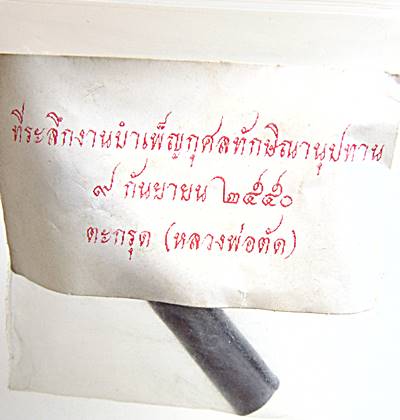 ที่ระลึกงานบำเพ็ญกุศลทักษิณานุปทาน
๙ กันยายน ๒๕๕๐
ตะกรุด (หลวงพ่อตัด)